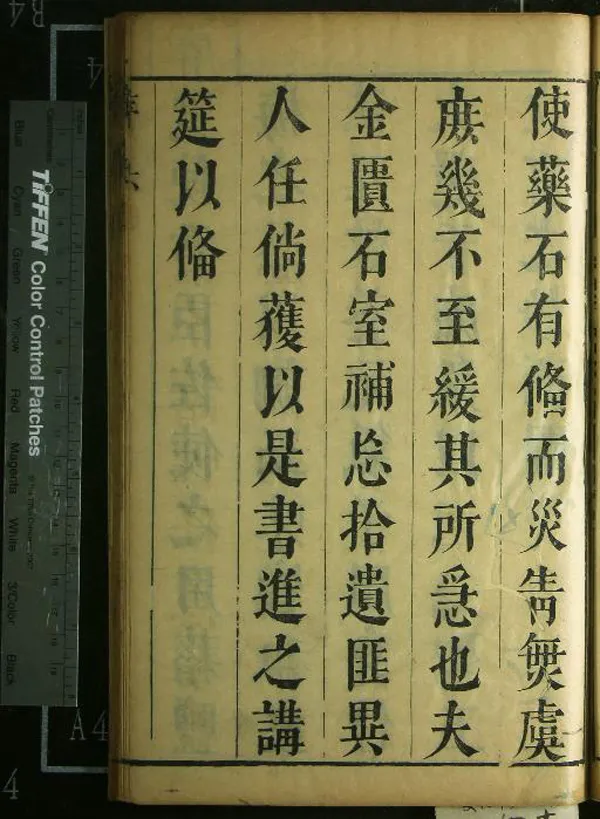 使藥石有俻而災眚無虞
庻幾不至緩其所急也夫
金匱石室補忘拾遺匪異
人任倘獲以是書進之講
筵以俻
TIFFEN Color Control Patches
Blue Cyan Green Yellow Red Magenta White 3/Color Black
B4
A4